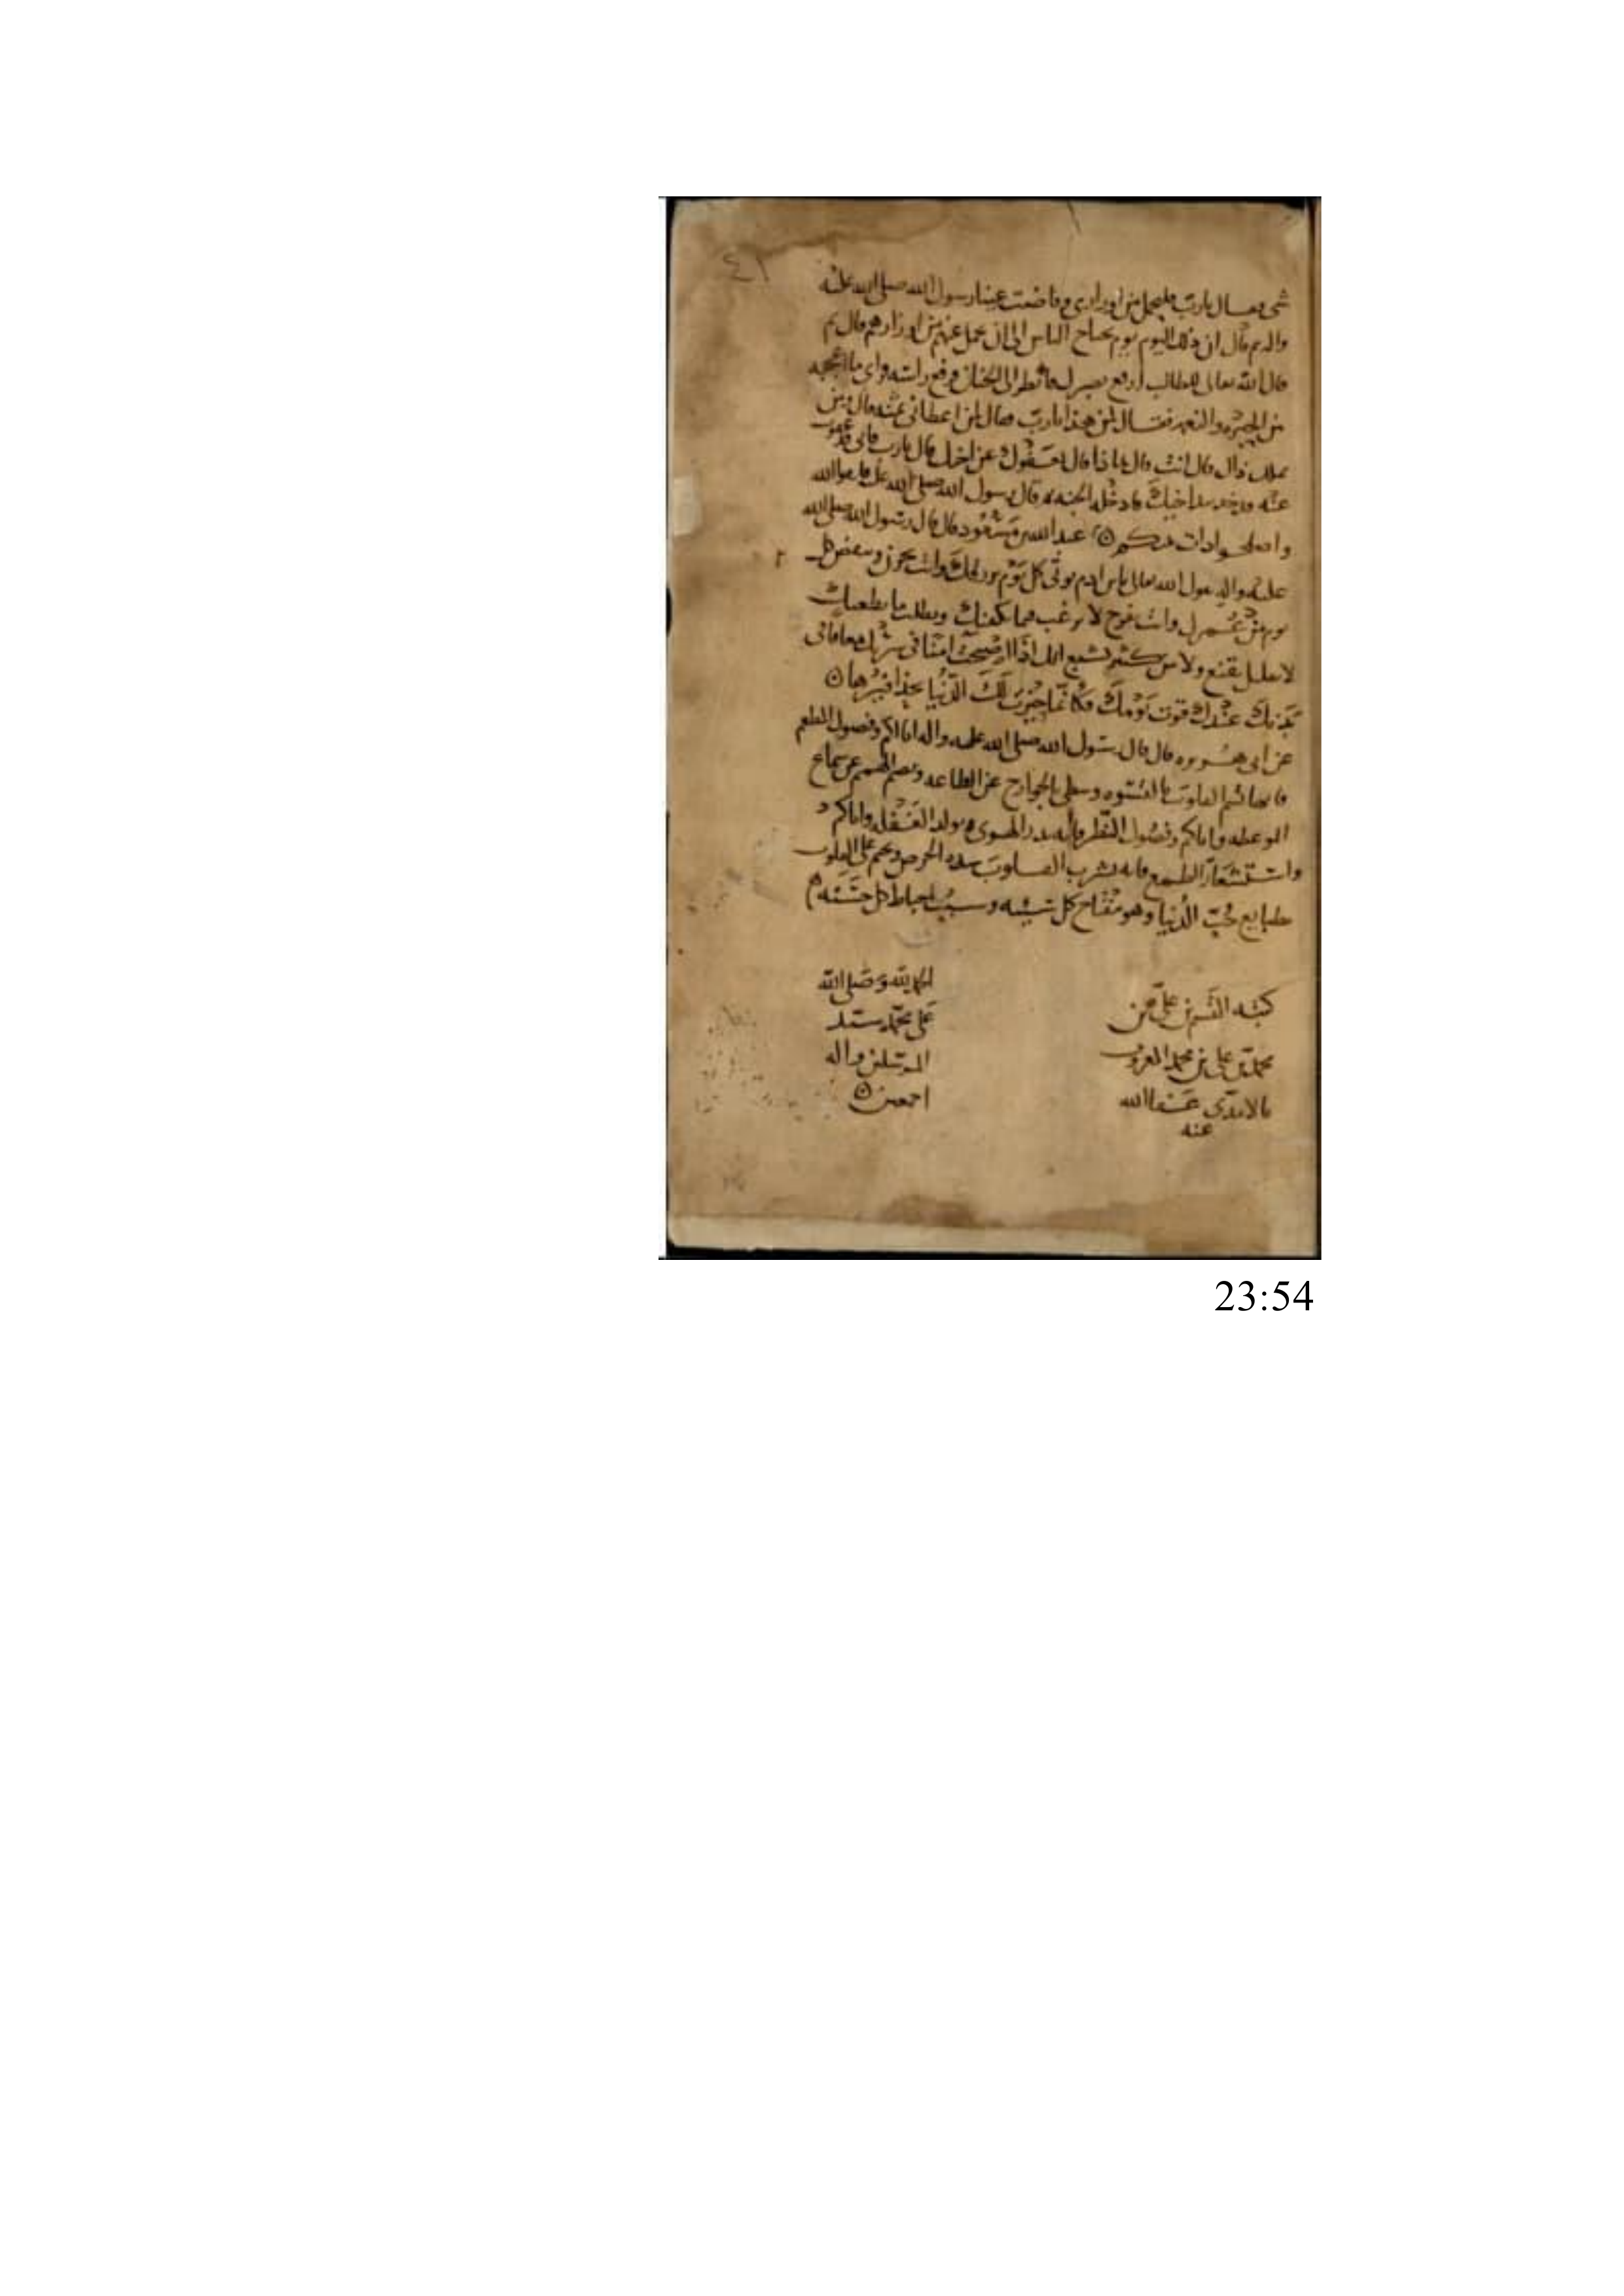 ٤١
شي فقال يارب فليحمل من اوزاري وفاضت عينا رسول الله صلى الله عليه
واله ثم قال ان ذلك اليوم يوم يحتاج الناس الى ان يحمل عنهم من اوزارهم قال ثم
قال الله تعالى للطالب ارفع بصرك فانظر الى الجنان فرفع راسه فراى ما اعجبه
من الخير والنعمه فقال لمن هذا يا رب فقال لمن اعطاني ثمنه قال ومن
يملك ذاك قال انت قال بماذا قال بعفوك عن اخيك قال يارب فاني قد عفوت
عنه قال فخذ بيد اخيك فادخله الجنه قال رسول الله صلى الله عليه فاتقوا الله
واصلحوا ذات بينكم ۞ عبد الله بن مسعود قال قال رسول الله صلى الله
عليه واله يقول الله تعالى يابن ادم يوتى كل يوم برزقك وانت تحزن وينقص كل
يوم من عمرك وانت تفرح لا ترغب فيما يكفيك وتطلب ما يطغيك
لا بقليل تقنع ولا من كثير تشبع ابن ادم اذا اصبحت امنا في سربك معافا في
بدنك عندك قوت يومك فكانما حيزت لك الدنيا بحذافيرها ۞
عن ابي هريره قال قال رسول الله صلى الله عليه واله اياكم وفضول المطعم
فانها تسم القلوب بالقسوه وتبطي بالجوارح عن الطاعه وتصم الهمم عن سماع
الموعظه واياكم وفضول النظر فانه يبذر الهوى ويولد الغفله واياكم و
واستشعار الطمع فانه يشرب القلوب شده الحرص ويختم على القلوب
طبايع حب الدنيا وهو مفتاح كل سيئه وسبب احباط كل حسنه
كتبه القسم بن علي بن
محمد بن علي بن محمد المعروف
بالامدي عفا الله
عنه
الحمد لله وصلى الله
على محمد سيد
المرسلين واله
اجمعين ۞
23:54